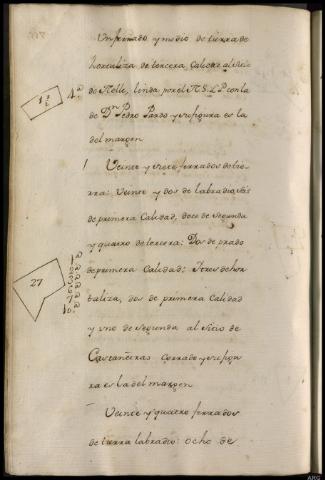 Un ferrado y medio de tierra de
hortaliza de tercera Calidad al sitio
de Nelle, linda por el N S L P con la
de Dn Pedro Pardo y su figura es la
del margen
1 1/2
4ª
Veinte y siete ferrados de tier-
ra: Veinte y dos de labradio, seis
de primera Calidad, doce de Segunda
y quatro de tercera: Dos de prado
de primera Calidad: Y tres de hor
taliza, dos de primera Calidad
y uno de Segunda al sitio de
Castañeiras Cerrado y su figu
ra es la del margen
27
Veinte y quatro ferrados
de tierra labradio: ocho de
ARG